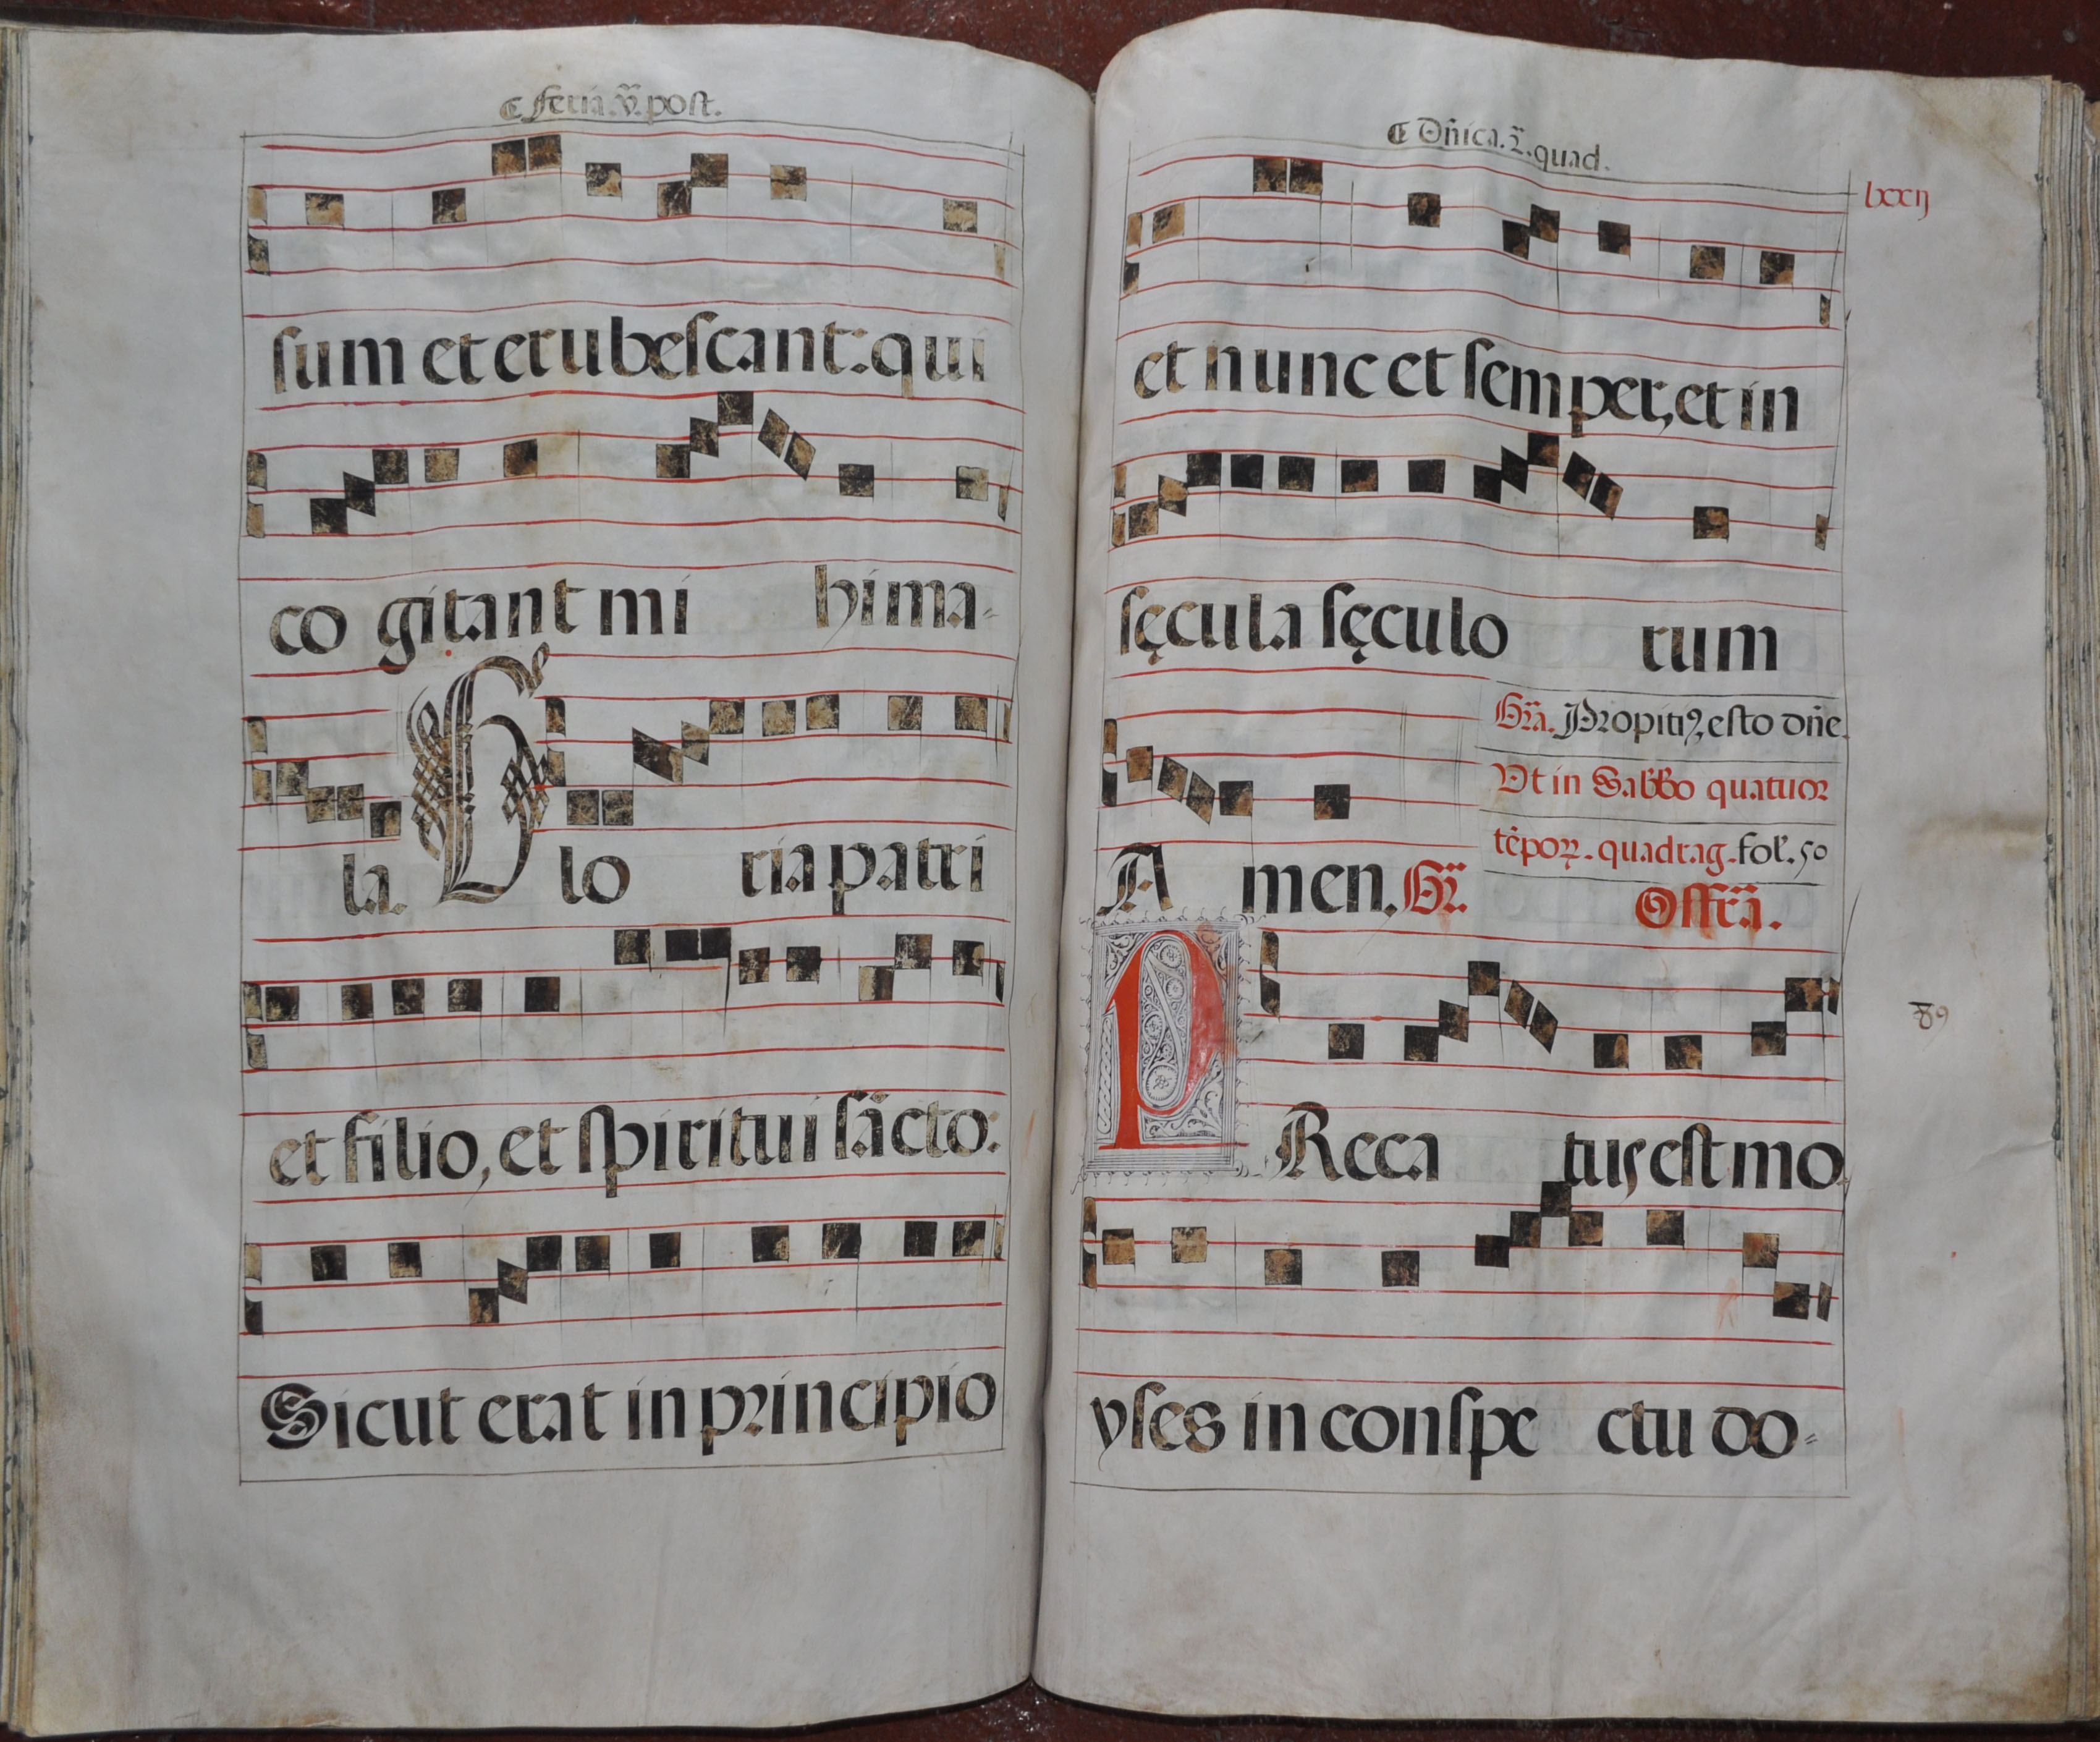 ¶ Feria. v̄. post.
sum et erubescant: qui
co gitant mi hi ma-
la. Glo ria patri
et filio, et spiritui sācto:
Sicut erat in principio
¶ Dñica. 2. quad.
lxxij
et nunc et semper, et in
sęcula sęculo rum
Gr̃a. Propitiꝰ, esto dñe.
Vt in Sabbo quatuor
tẽpoꝝ. quadrag. fol. 50
A men. Gr̃. Offr̃ã.
89
PReca tus est mo
yses in conspe ctu do-